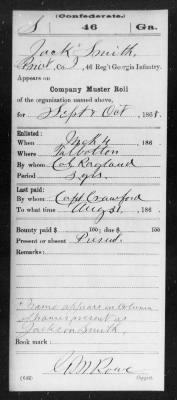 (Confederate.)
S 46 Ga.
Jack Smith,
Pvt, Co. I, 46 Reg't Georgia Infantry.
Appears on
Company Muster Roll
of the organization named above,
for Sept & Oct, 186
Enlisted:
When Mch 4, 186
Where Talbotton
By whom Col Ragland
Period 3 yrs.
Last paid:
By whom Capt Crawford
To what time Aug 31, 186
Bounty paid $ 100; due $ 100
Present or absent Present
Remarks:
Name appears in column
names present as
Jackson Smith.
Book mark:
(642) Copyist.